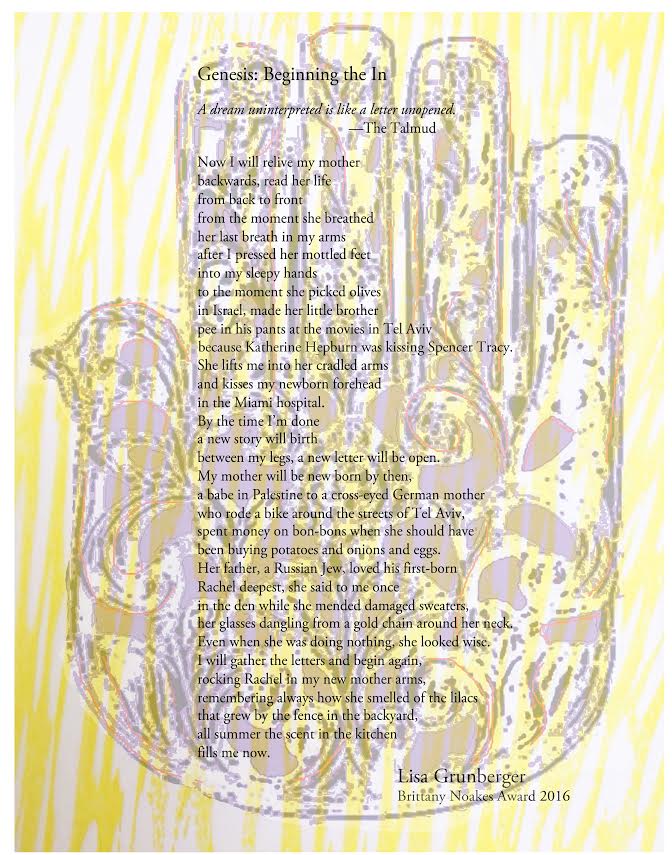 Genesis: Beginning the In
A dream uninterpreted is like a letter unopened.
—The Talmud
Now I will relive my mother
backwards, read her life
from back to front
from the moment she breathed
her last breath in my arms
after I pressed her mottled feet
into my sleepy hands
to the moment she picked olives
in Israel, made her little brother
pee in his pants at the movies in Tel Aviv
because Katherine Hepburn was kissing Spencer Tracy.
She lifts me into her cradled arms
and kisses my newborn forehead
in the Miami hospital.
By the time I'm done
a new story will birth
between my legs, a new letter will be open.
My mother will be new born by then,
a babe in Palestine to a cross-eyed German mother
who rode a bike around the streets of Tel Aviv,
spent money on bon-bons when she should have
been buying potatoes and onions and eggs.
Her father, a Russian Jew, loved his first-born
Rachel deepest, she said to me once
in the den while she mended damaged sweaters,
her glasses dangling from a gold chain around her neck.
Even when she was doing nothing, she looked wise.
I will gather the letters and begin again,
rocking Rachel in my new mother arms,
remembering always how she smelled of the lilacs
that grew by the fence in the backyard,
all summer the scent in the kitchen
fills me now.
Lisa Grunberger
Brittany Noakes Award 2016